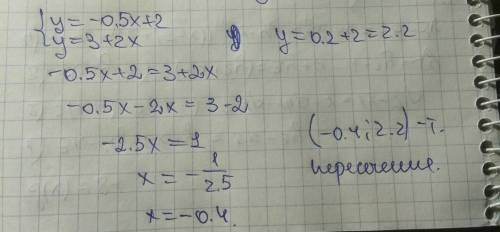 {y=-0.5x+2
y=3+2x
-0.5x+2=3+2x
-0.5x-2x=3-2
-2.5x=1
x=-1/2.5
x=-0.4.
y=0.2+2=2.2
(-0.4; 2.2) -т.
пересечения.